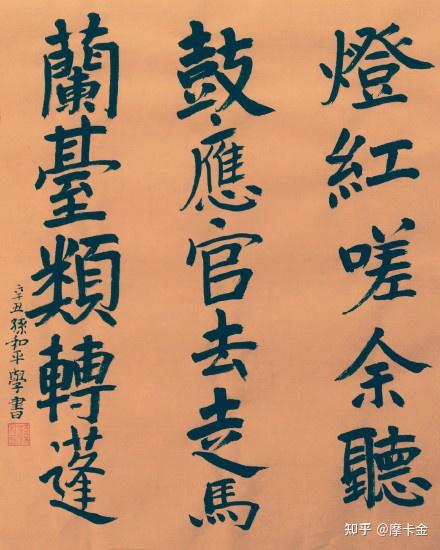 燈紅嗟余聽
鼓應官去走馬
蘭臺類轉蓬
辛丑孫和平學書
知乎 @摩卡金